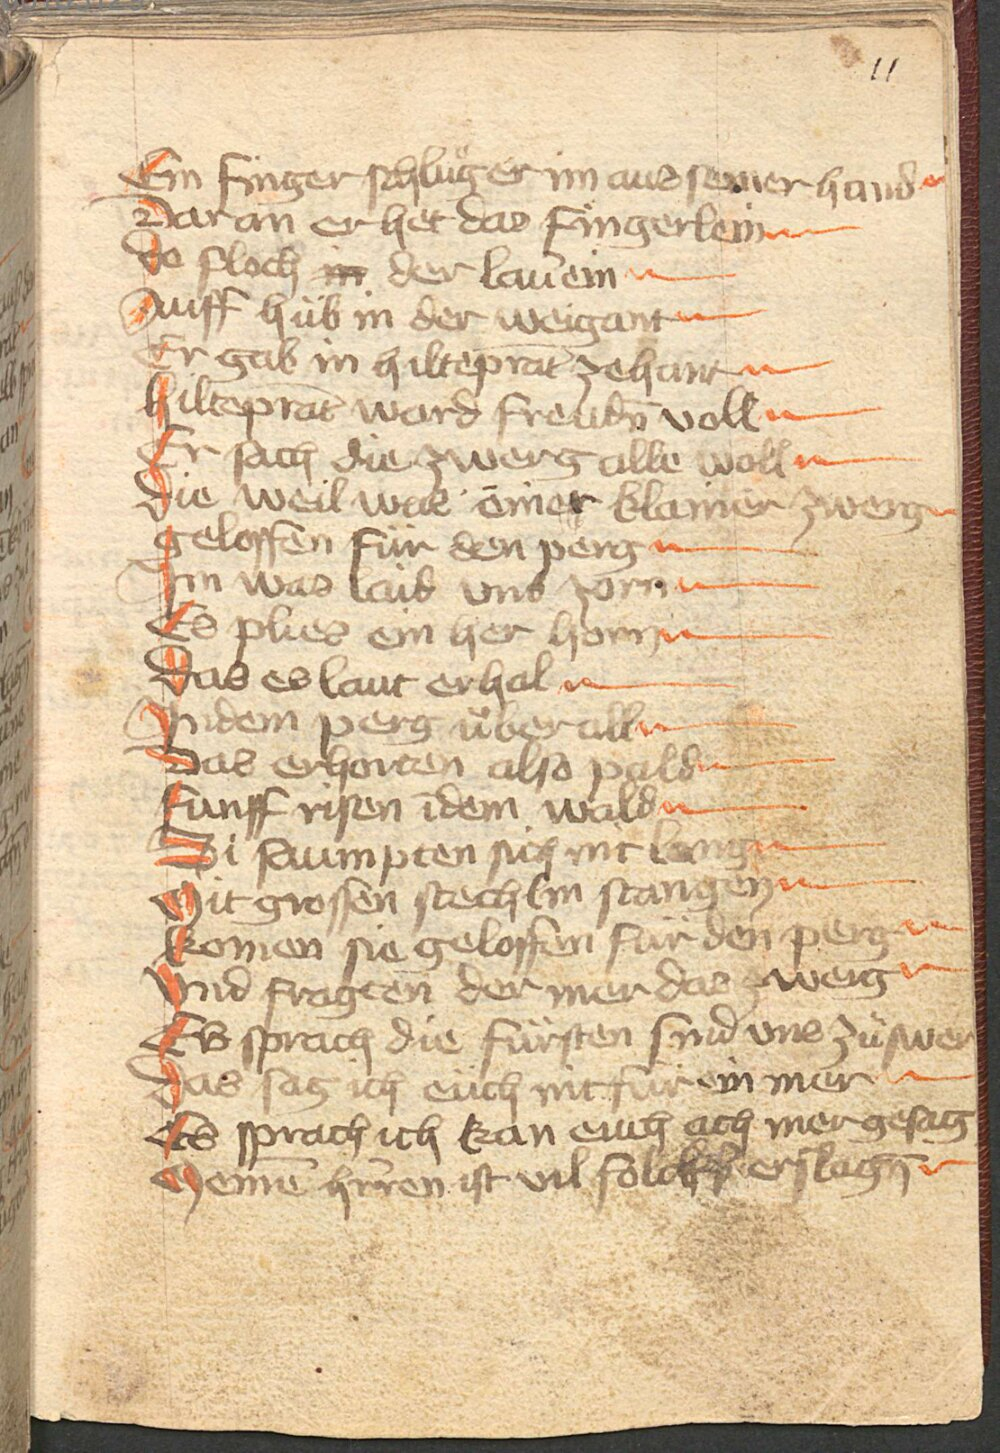 11
Ein finger schlůg er im aus seiner hand
Dar an er het das fingerlein
do floch im der laurein
Auff hüb in der weigant
Er gab in hilteprāt zehant
hilteprāt ward freudn̄ voll
Er sach die zwerg alle woll
Die weil was einer klainer zwerg
geloffen für den perg
Im was laid vnd zorn
Es plies ein her horn
Das es laut erhal
Indem perg über all
Das erhorten also pald
funff risen īdem wald
Si saumpten sich nit lang
Mit grossen stechlin stangen
komen sie geloffen für den perg
Vnd fragten der mer das zwerg
Es sprach die fürsten sind vns zů swer
Das sag ich euch nit für ein mer
Es sprach ich kan euch ach mer gesag
Meinē hr̄ren ist vil folcks erslagn̄